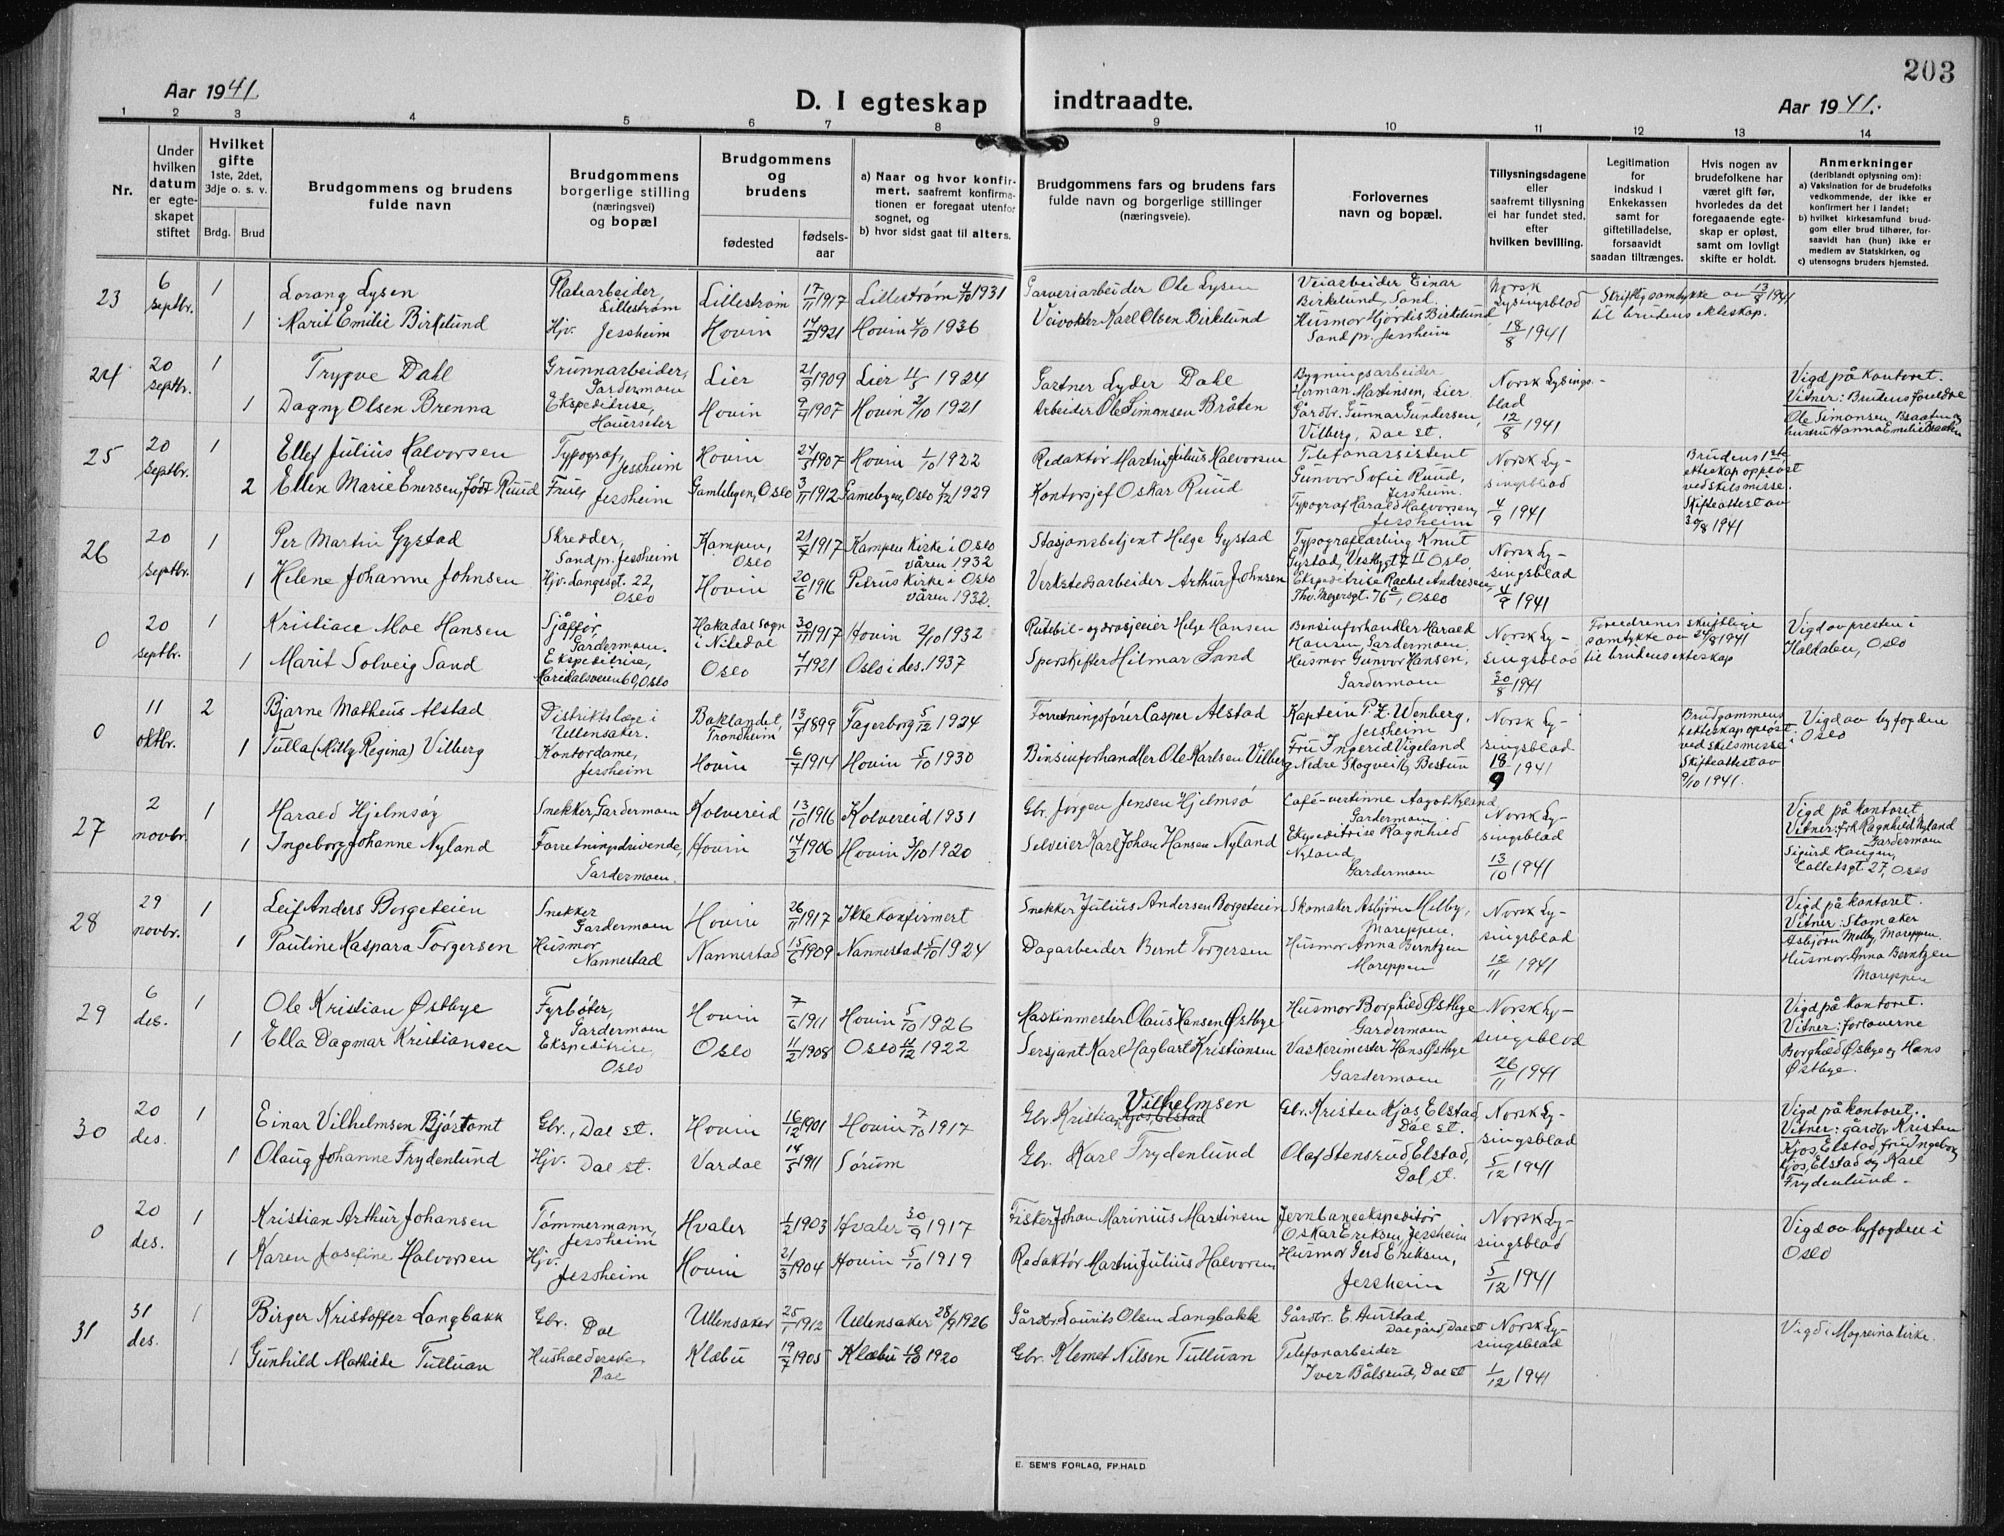 203
Aar 1941.
D. I egteskap indtraadte.
Aar 1941.
1 2 3 4 5 6 7 8 9 10 11 12 13 14
Nr.
Under hvilken datum er egteskapet stiftet
Hvilket gifte
1ste, 2det, 3dje o. s. v.
Brdg. Brud
Brudgommens og brudens fulde navn
Brudgommens borgerlige stilling (næringsvei) og bopæl
Brudgommens og brudens
fødested
fødselsaar
a) Naar og hvor konfirmert, saafremt konfirmationen er foregaat utenfor sognet, og
b) hvor sidst gaat til alters.
Brudgommens fars og brudens fars fulde navn og borgerlige stillinger (næringsveie).
Forlovernes navn og bopæl.
Tillysningsdagene eller saafremt tillysning ei har fundet sted, efter hvilken bevilling.
Legitimation for indskud i Enkekassen samt for giftetilladelse, forsaavidt saadan tiltrænges.
Hvis nogen av brudefolkene har været gift før, hvorledes da det foregaaende egteskap er opløst, samt om lovlig skifte er holdt.
Anmerkninger (deriblandt oplysning om):
a) Vaksination for de brudefolks vedkommende, der ikke er konfirmert her i landet;
b) hvilket kirkesamfund brudgom eller brud tilhører, forsaavidt han (hun) ikke er medlem av Statskirken, og
c) utensogns bruders hjemsted.
23 6 septbr. 1 Lorang Lysen Platearbeider Lillestrøm Lillestrøm 17/11 1917 Lillestrøm 4/10 1931 Garveriarbeider Ole Lysen Veiarbeider Einar Birkelund, Sand. Norsk Lysingsblad 18/8 1941 Skriftlig samtykke av 13/8 1941 til brudens ekteskap.
1 Marit Emilie Birkelund Hjv. Jessheim Hovin 1921 Hovin 4/10 1936 Veivokter Karl Olsen Birkelund Husmor Hjørdis Birkelund Sand pr. Jessheim
24 20 septbr. 1 Trygve Dahl Grunnarbeider, Gardermoen Lier 21/9 1909 Lier 11/5 1924 Gartner Lyder Dahl Bygningsarbeider Herman Martinsen, Lier Norsk Lysingsblad 12/8 1941 Vigd på kontoret. Vitner: Brudens foreldre
1 Dagny Olsen Brenna Ekspeditrise, Haverseter Hovin 1907 Hovin 2/10 1921 Arbeider Ole Simonsen Bråten Gårdbr. Gunnar Gundersen, Vilberg, Dal st. Ole Simonsen Braaten og hustru Hanna Emilie Braaten
25 20 septbr. 1 Ellef Julius Halvorsen Typograf Jessheim Hovin 24/3 1907 Hovin 1/10 1922 Redaktør Martin Julius Halvorsen Telefonassistent Gunvor Sofie Ruud, Jessheim. Norsk Lysingsblad 4/9 1941 Brudens 1ste ekteskap oppløst ved skilsmisse. Skifteattest av 30/8 1941
2 Ellen Marie Enersen, født Ruud Frue Jessheim Gamlebyen, Oslo 3/11 1912 Gamlebyen, Oslo 1929 Kontorsjef Oskar Ruud Typograf Harald Halvorsen, Jessheim
26 20 septbr. 1 Per Martin Gystad Skredder, Sand pr. Jessheim Kampen, Oslo 21/7 1917 Kampen Kirke i Oslo våren 1932 Stasjonsbetjent Helge Gystad Typograflærling Knut Gystad, II Oslo Norsk Lysingsblad 4/9 1941
1 Helene Johanne Johnsen Hjv. Langesgt. 22, Oslo Hovin 20/6 1916 Petrus Kirke i Oslo våren 1932. Verkstedsarbeider Arthur Johnsen Ekspeditrise Rachel Andresen, Thv. Meyersgt. 76, Oslo
0 20 septbr. 1 Kristian Moe Hansen Sjåffør, Gardermoen. Hakadal sogn i Nitedal 30/11 1917 Hovin 2/10 1932 Rutebil- og drosjeeier Helge Hansen Bensinforhandler Harald Hansen Gardermoen. Norsk Lysingsblad 30/8 1941 Foreldrenes skriftlige samtykke av 24/8 1941 til brudens ekteskap Vigd av presten i Haldalen, Oslo
1 Marit Solveig Sand Ekspeditrise, Maridalsveien 60, Oslo Oslo 4/7 1921 Oslo i des. 1937 Sporskifter Hilmar Sand Husmor Gunvor Hansen, Gardermoen
0 11 oktbr. 2 Bjarne Matheus Alstad Distriktslæge i Ullensaker. Baklandet, Trondheim 13/4 1899 Fagerborg 5/12 1924 Forretningsfører Casper Alstad Kaptein P. Z. Wenberg, Jessheim Norsk Lysingsblad 18/9 1941 Brudgommens 1. ekteskap oppløst ved skilsmisse. Skifteattest av 9/10 1941. Vigd av byfogden i Oslo
1 Tulla (Milly Regina) Vilberg Kontordame, Jessheim Hovin 6/7 1914 Hovin 5/10 1930 Bensinforhandler Ole Karlsen Vilberg Fru Ingerid Vigeland Nedre Skogvei 16, Bestun
27 2 novbr. 1 Harald Hjelmsøy Snekker, Gardermoen Kolvereid 13/10 1916 Kolvereid 1931 Gbr. Jørgen Jensen Hjelmsø Café-vertinne Aagot Nyland, Gardermoen Norsk Lysingsblad 13/10 1941 Vigd på kontoret. Vitner: frk Ragnhild Nyland Gardermoen
1 Ingeborg Johanne Nyland Forretningsdrivende, Gardermoen. Hovin 14/2 1906 Hovin 3/10 1920 Selveier Karl Johan Hansen Nyland Ekspeditrise Ragnhild Nyland, Gardermoen Sigurd Haugen, Colletsgt. 27, Oslo
28 29 novbr. 1 Leif Anders Borgeteien Snekker Gardermoen Hovin 26/11 1917 Ikke konfirmert Snekker Julius Andersen Borgeteien Skomaker Asbjørn Melby, Mareppen. Norsk Lysingsblad 12/11 1941 Vigd på kontoret. Vitner: Skomaker Asbjørn Melby, Mareppen.
1 Pauline Kaspara Torgersen Husmor Nannestad Nannestad 15/6 1909 Nannestad 5/10 1924 Dagarbeider Bernt Torgersen Husmor Anna Berntzen Mareppen Husmor Anna Berntzen Mareppen
29 6 des. 1 Ole Kristian Østbye Fyrbøter, Gardermoen Hovin 7/6 1911 Hovin 5/10 1926 Maskinmester Olaus Hansen Østbye Husmor Borghild Østbye Gardermoen Norsk Lysingsblad 26/11 1941 Vigd på kontoret. Vitner: forloverne
1 Ella Dagmar Kristiansen Ekspeditrise, Oslo Oslo 11/2 1908 Oslo 11/12 1922 Sersjant Karl Hagbart Kristiansen Vaskerimester Hans Østbye Gardermoen Borghild Østbye og Hans Østbye.
30 20 des. 1 Einar Vilhelmsen Bjørtomt Gbr., Dal st. Hovin 16/12 1901 Hovin 7/10 1917 Gbr. Kristian Vilhelmsen Kjos, Elstad Gbr. Kristen Kjos, Elstad Dal st. Norsk Lysingsblad 5/12 1941 Vigd på kontoret. Vitner: gårdbr Kristen Kjos, Elstad, fru Ingeborg
1 Olaug Johanne Frydenlund Hjv. Dal st. Vardal 14/5 1911 Sørum Gbr. Karl Frydenlund Olaf Stensrud Elstad, Dal st. Kjos, Elstad og Karl Frydenlund.
0 20 des. 1 Kristian Arthur Johansen Tømmermann, Jessheim Hvaler 1/2 1903 Hvaler 30/9 1917 Fisker Johan Marinius Martinsen Jernbaneekspeditør Oskar Eriksen, Jessheim Norsk Lysingsblad 5/12 1941 Vigd av byfogden i Oslo
1 Karen Josefine Halvorsen Hjv. Jessheim Hovin 21/3 1904 Hovin 5/10 1919 Redaktør Martin Julius Halvorsen Husmor Gerd Eriksen, Jessheim
31 31 des. 1 Birger Kristoffer Langbakk Gbr. Dal Ullensaker 25/1 1912 Ullensaker 28/9 1926 Gårdbr Laurits Olsen Langbakk Gårdbr. E. Aurstad Dal gård, Dal st Norsk Lysingsblad 1/12 1941 Vigd i Mogreina kirke.
1 Gunhild Mathilde Tulluan Husholderske Dal Klæbu 19/7 1905 Klæbu 10/10 1920 Gbr. Klemet Nilsen Tulluan Telefonarbeider Iver Bålsrud, Dal st
E. SEM'S FORLAG, FR.HALD